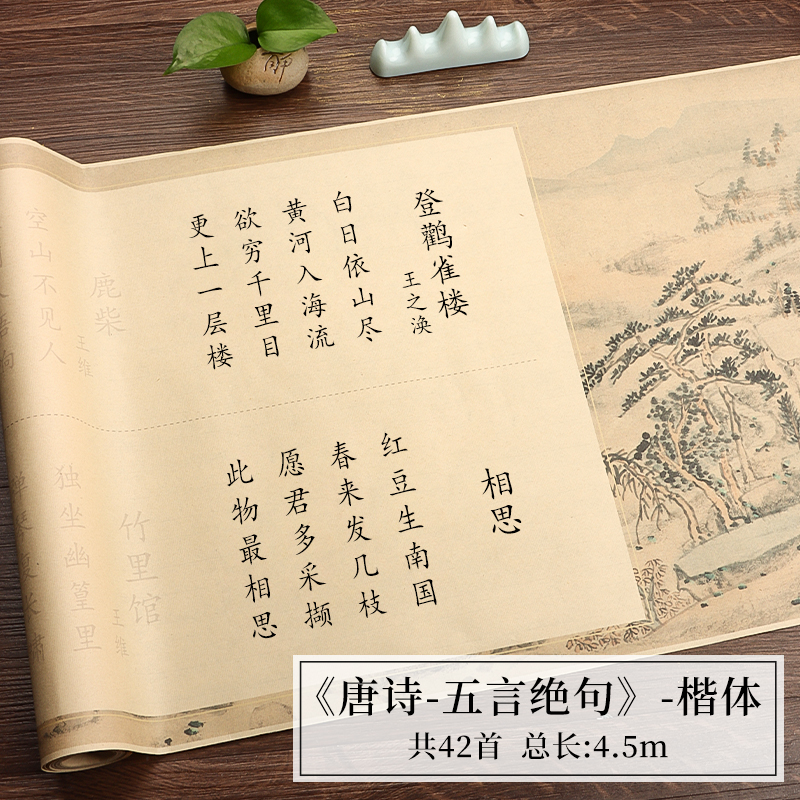 登鹳雀楼
王之涣
白日依山尽
黄河入海流
欲穷千里目
更上一层楼
相思
红豆生南国
春来发几枝
愿君多采撷
此物最相思
鹿柴
王维
空山不见人
竹里馆
王维
独坐幽篁里
《唐诗-五言绝句》-楷体
共42首 总长:4.5m